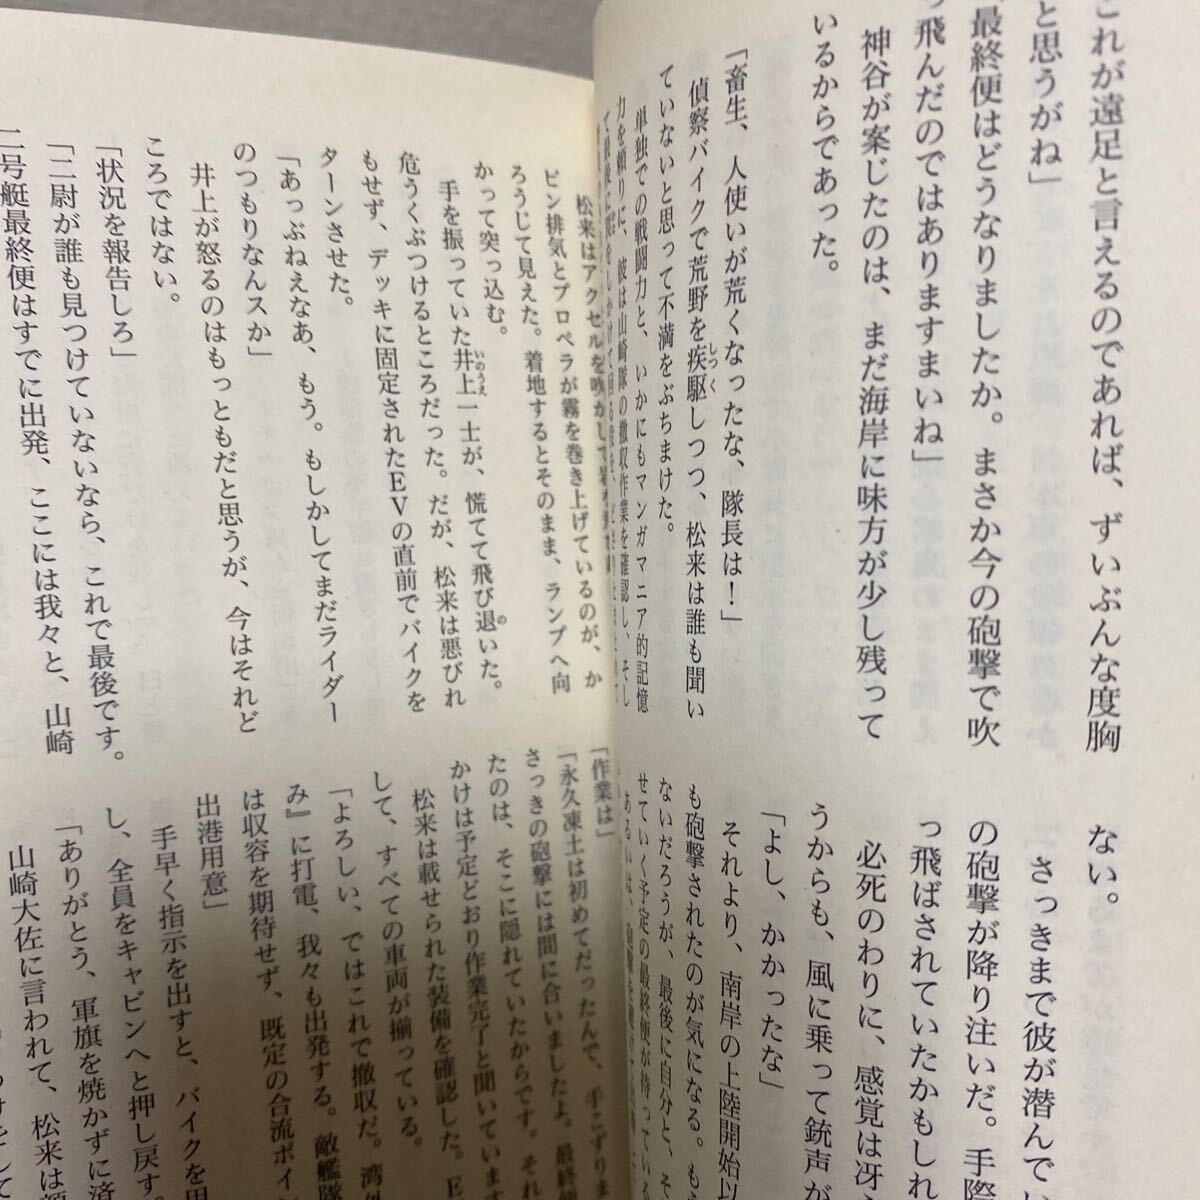 これが遠足と言えるのであれば、ずいぶんな度胸
と思うがね」
「最終便はどうなりましたか。まさか今の砲撃で吹
っ飛んだのではありますまいね」
神谷が案じたのは、まだ海岸に味方が少し残って
いるからであった。
「畜生、人使いが荒くなったな、隊長は！」
偵察バイクで荒野を疾駆しつつ、松来は誰も聞い
ていないと思って不満をぶちまけた。
単独での戦闘力と、いかにもマンガマニア的記憶
力を頼りに、彼は山崎隊の撤収作業を確認し、そし
て最後に
ない。
さっきまで彼が潜んで
の砲撃が降り注いだ。手際
っ飛ばされていたかもしれ
必死のわりに、感覚は冴え
うからも、風に乗って銃声が
「よし、かかったな」
それより、南岸の上陸開始以
も砲撃されたのが気になる。も
ないだろうが、最後に自分と、そ
せていく予定の最終便が待っている
松来はアクセルを
ビン排気とプロペラが霧を巻き上げているのが、か
ろうじて見えた。着地するとそのまま、ランプへ向
かって突っ込む。
手を振っていた井上一士が、慌てて飛び退いた。
危うくぶつけるところだった。だが、松来は悪びれ
もせず、デッキに固定されたEVの直前でバイクを
ターンさせた。
「あっぶねえなあ、もう。もしかしてまだライダー
のつもりなんスか」
井上が怒るのはもっともだと思うが、今はそれど
ころではない。
「状況を報告しろ」
「二尉が誰も見つけていないなら、これで最後です。
二号艇最終便はすでに出発、ここには我々と、山崎
「作業は」
「永久凍土は初めてだったんで、手こずりま
さっきの砲撃には間に合いましたよ。最終便
たのは、そこに隠れていたからです。それ
かけは予定どおり作業完了と聞いています
松来は載せられた装備を確認した。E
して、すべての車両が揃っている。
「よろしい、ではこれで撤収だ。湾外
み』に打電、我々も出発する。敵艦隊
は収容を期待せず、既定の合流ポイ
出港用意」
手早く指示を出すと、バイクを
し、全員をキャビンへと押し戻す。
「ありがとう、軍旗を焼かずに済
山崎大佐に言われて、松来は